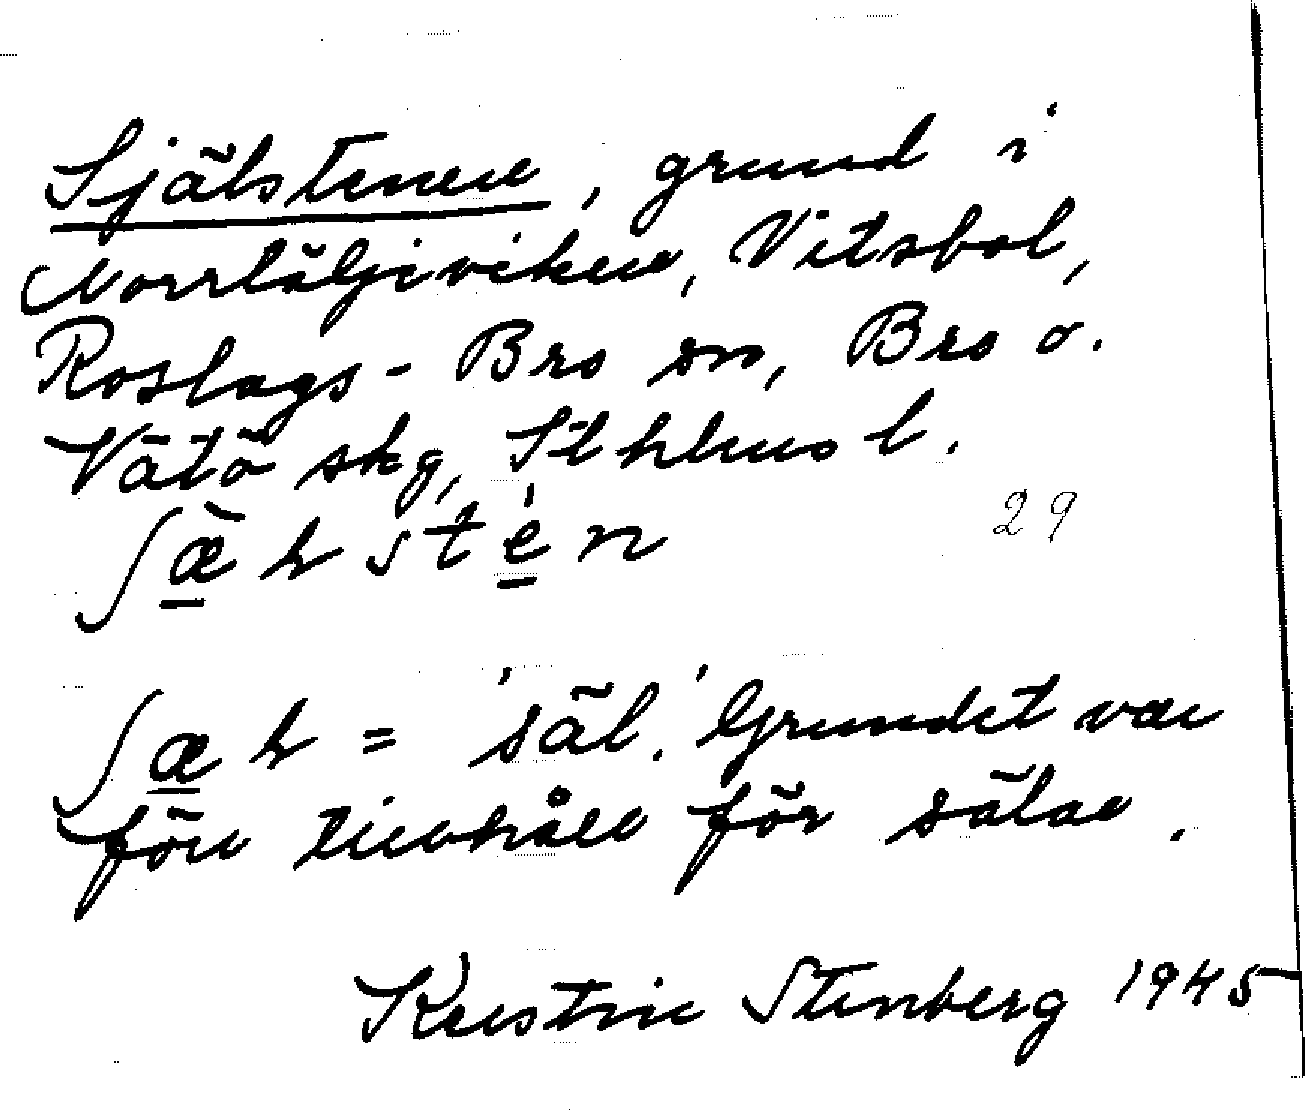 Själstenen, grund i
Norrtäljeviken, Vitsbol,
Roslags-Bro sn, Bro o.
Vätö skg, Sthlms l.
ʃæ̀lstén
29
ʃæl = 'säl'. Grundet var
förr tillhåll för sälar.
Kerstin Stenberg 1945